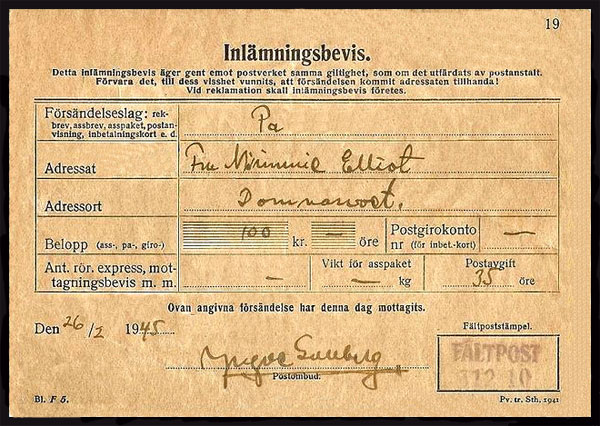 19
Inlämningsbevis.
Detta inlämningsbevis äger gent emot postverket samma giltighet, som om det utfärdats av postanstalt.
Förvara det, till dess visshet vunnits, att försändelsen kommit adressaten tillhanda!
Vid reklamation skall inlämningsbevis företes.
Försändelseslag: rek-
brev, assbrev, asspaket, postan-
visning, inbetalningskort e. d.
Pa
Adressat
Fru Mimmie Elliot
Adressort
Domnarvet.
Belopp (ass-, pa-, giro-)
100 kr. — öre
Postgirokonto
nr (för inbet.-kort)
—
Ant. rör. express, mot-
tagningsbevis m. m.
—
Vikt för asspaket
— kg
Postavgift
35 öre
Ovan angivna försändelse har denna dag mottagits.
Den 26/2 1945
Yngve
Postombud.
Fältpoststämpel.
FÄLTPOST
Bl. F 5.
Pv. tr. Sth. 1941